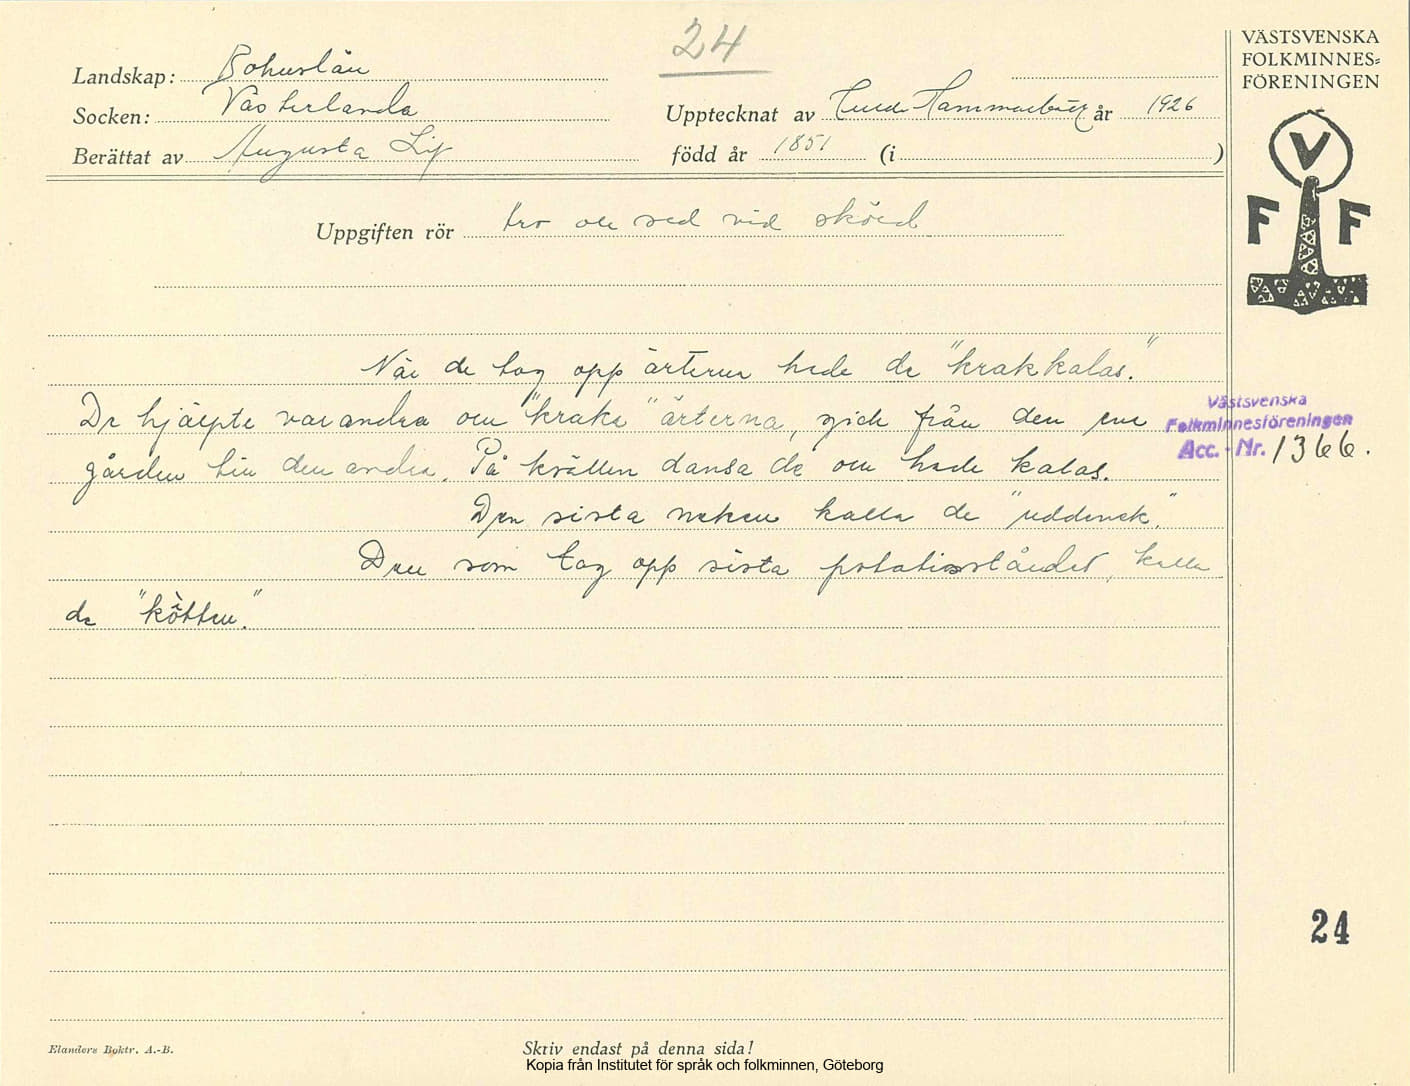 24
VÄSTSVENSKA
FOLKMINNES=
FÖRENINGEN
Landskap: Bohuslän
Socken: Västerlanda
Upptecknat av Hammarbäck år 1926
Berättat av Augusta
född år 1851 (i )
V
F F
Uppgiften rör tro och sed vid skörd
När de tog opp ärterna hade de "krakkalas."
De hjälpte varandra och "kraka" ärterna, gick från den ene
gården till den andra. På kvällen dansa de och hade kalas.
Den sista neken kalla de "uddenek."
Den som tog opp sista potatisståndet, kalla
de "kötten."
Västsvenska
Folkminnesföreningen
Acc.-Nr. 1366.
24
Elanders Boktr. A.-B.
Skriv endast på denna sida!
Kopia från Institutet för språk och folkminnen, Göteborg